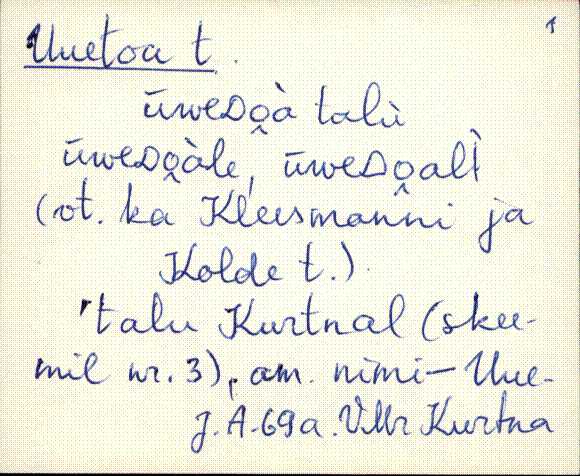 1
Uuetoa t.
ūweᴅo̭à talù
ūweᴅo̭àle, ūweᴅo̭alt̀
(vt. ka Kleesmanni ja
Kolde t.).
'talu Kurtnal (skee-
mil nr. 3), am. nimi – Uue-
J. A. 69a. VMr Kurtna